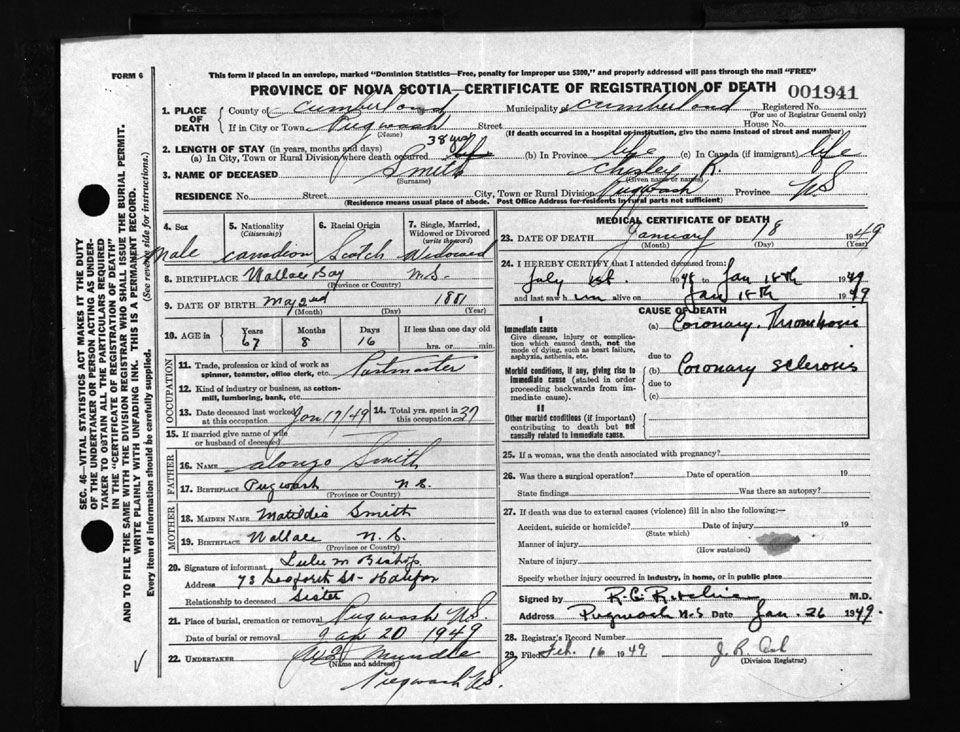 FORM 6
This form if placed in an envelope, marked "Dominion Statistics—Free, penalty for improper use $300," and properly addressed will pass through the mail "FREE"
PROVINCE OF NOVA SCOTIA—CERTIFICATE OF REGISTRATION OF DEATH 001941
1. PLACE OF DEATH County of Cumberland Municipality Cumberland Registered No.
(For use of Registrar General only)
If in City or Town Pugwash Street House No.
(Name) (If death occurred in a hospital or institution, give the name instead of street and number)
2. LENGTH OF STAY (in years, months and days) 38 yrs
(a) In City, Town or Rural Division where death occurred life (b) In Province life (c) In Canada (if immigrant) life
3. NAME OF DECEASED Smith R.
(Surname) (Given name or names)
RESIDENCE No. Street City, Town or Rural Division Pugwash Province N.S
(Residence means usual place of abode. Post Office Address for residents in rural parts not sufficient)
4. Sex Male
5. Nationality (Citizenship) Canadian
6. Racial Origin Scotch
7. Single, Married, Widowed or Divorced (write the word) Widowed
8. BIRTHPLACE Wallace Bay N.S.
(Province or Country)
9. DATE OF BIRTH May 2nd 1881
(Month) (Day) (Year)
10. AGE in Years 67 Months 8 Days 16 If less than one day hrs. or min.
OCCUPATION
11. Trade, profession or kind of work as spinner, teamster, office clerk, etc. Postmaster
12. Kind of industry or business, as cotton-mill, lumbering, bank, etc.
13. Date deceased last worked at this occupation Jan 17/49 14. Total yrs. spent in this occupation 37
15. If married give name of wife or husband of deceased
FATHER
16. Name Alonzo Smith
17. Birthplace Pugwash N.S.
(Province or Country)
MOTHER
18. Maiden Name Matildia Smith
19. Birthplace Wallace N.S.
(Province or Country)
20. Signature of informant Lulu M Bishop
Address 73 Seaforth St- Halifax
Relationship to deceased Sister
21. Place of burial, cremation or removal Pugwash N.S.
Date of burial or removal Jan 20 1949
22. UNDERTAKER Mundle
(Name and address)
Pugwash N.S.
MEDICAL CERTIFICATE OF DEATH
23. DATE OF DEATH January 18 1949
(Month) (Day) (Year)
24. I HEREBY CERTIFY that I attended deceased from
July 1st. 1948 to Jan 18th 1949
and last saw him alive on Jan 18th 1949
CAUSE OF DEATH
I
Immediate cause
Give disease, injury or complication which caused death, not the mode of dying, such as heart failure, asphyxia, asthenia, etc.
(a) Coronary Thrombosis
due to
Morbid conditions, if any, giving rise to immediate cause (stated in order proceeding backwards from immediate cause).
(b) Coronary sclerosis
due to
(c)
II
Other morbid conditions (if important) contributing to death but not causally related to immediate cause.
25. If a woman, was the death associated with pregnancy?
26. Was there a surgical operation? Date of operation 19
State findings Was there an autopsy?
27. If death was due to external causes (violence) fill in also the following:—
Accident, suicide or homicide? Date of injury 19
(State which)
Manner of injury
(How sustained)
Nature of injury
Specify whether injury occurred in industry, in home, or in public place
Signed by R.C. Ritchie M.D.
Address Pugwash N.S Date Jan. 26 1949.
28. Registrar's Record Number
29. Filed Feb. 16 1949
(Division Registrar)
SEC. 46—VITAL STATISTICS ACT MAKES IT THE DUTY
OF THE UNDERTAKER OR PERSON ACTING AS UNDER-
TAKER TO OBTAIN ALL THE PARTICULARS REQUIRED
IN THE "CERTIFICATE OF REGISTRATION OF DEATH"
AND TO FILE THE SAME WITH THE DIVISION REGISTRAR WHO SHALL ISSUE THE BURIAL PERMIT.
WRITE PLAINLY WITH UNFADING INK. THIS IS A PERMANENT RECORD.
Every item of information should be carefully supplied. (See reverse side for instructions.)